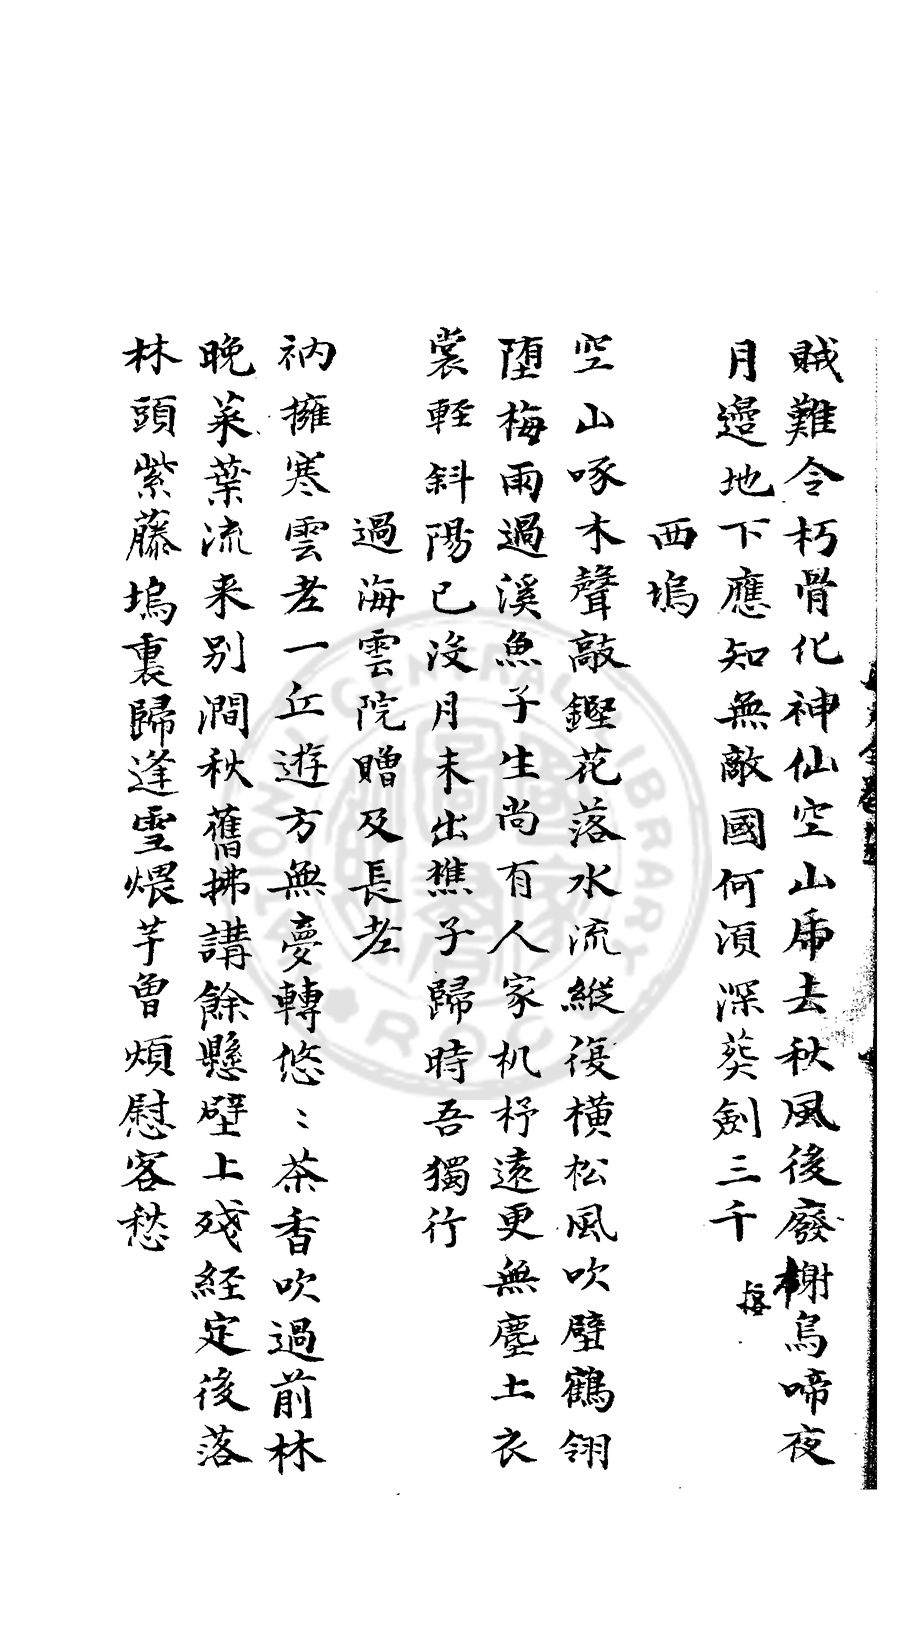 賊難令朽骨化神仙空山虎去秋風後廢榭烏啼夜
月邉地下應知無敵國何湏深葬劍三千
西塢
空山啄木聲敲鏗花落水流縱復橫松風吹壁鶴翎
堕梅雨過溪魚子生尚有人家机杼遠更無塵土衣
裳輕斜陽已没月未出樵子歸時吾獨行
過海雲院贈及長老
衲擁寒雲老一丘遊方無夢轉悠〻茶香吹過前林
晚菜葉流来别澗秋舊拂講餘懸壁上殘経定後落
林頭紫藤塢裏歸逢雪煨芋曾煩慰客愁
NATIONAL CENTRAL LIBRARY R.O.C